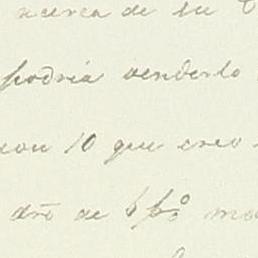 acerca de su
podria venderlo
con 10 que creo
dro de 6 p%